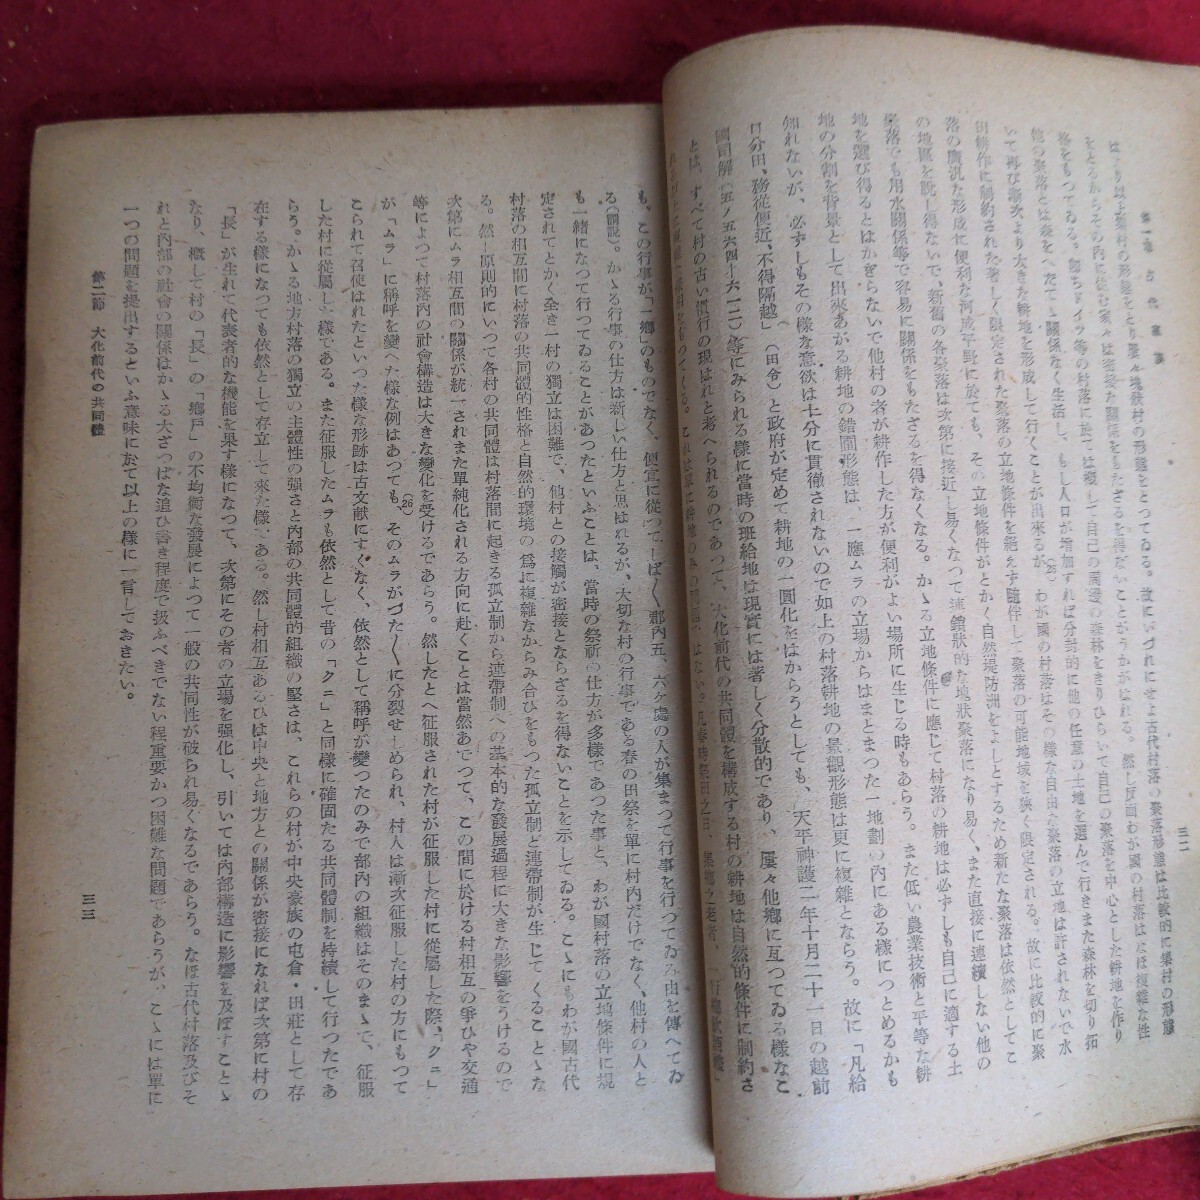 三二
はゞり以上集村の形態をとり屢々塊狀村の形態をとつてゐる。故にいづれにせよ古代村落の聚落形態は比較的に集村の形態
をとるからその内に住む家々は密接な關係をもたざるを得ないことがうかがはれる。然し反面わが國の村落はなほ複雜な性
格をもつてゐる。卽ちドイツ等の村落に於ては概して自己の周邊の森林をきりひらいて自己の聚落を中心とした耕地を作り
他の聚落とは森をへだてゝ關係なく生活し、もし人口が增加すれば分封的に他の任意の土地を選んで行きまた森林を切り拓
いて再び漸次より大きた耕地を形成して行くことが出來るが、(25)わが國の村落はその樣な自由な聚落の立地は許されないで水
田耕作に制約された著しく限定された聚落の立地條件を絕えず隨伴して聚落の可能地域を狹く限定される。故に比較的に聚
落の廣況な形成に便利な河成平野に於ても、その立地條件がとかく自然堤防洲をよしとするため新たな聚落は依然としてこ
の地區を脫し得ないで、新舊の各聚落は次第に接近し易くなつて連鎖狀的な塊狀聚落になり易く、また直接に連續しない他の
聚落でも用水關係等で容易に關係をもたざるを得なくなる。かゝる立地條件に應じて村落の耕地は必ずしも自己に適する土
地を選び得るとはかぎらないで他村の者が耕作した方が便利がよい場所に生じる時もあらう。また低い農業技術と平等な耕
地の分割を背景として出來あがる耕地の錯圃形態は、一應ムラの立場からはまとまつた一地劃の内にある樣につとめるかも
知れないが、必ずしもその樣な意欲は十分に貫徹されないので如上の村落耕地の景觀形態は更に複雜とならう。故に「凡給
口分田、務從便近、不得隔越」（田令）と政府が定めて耕地の一圓化をはからうとしても、天平神護二年十月二十一日の越前
國司解（五ノ五六四―六一二）等にみられる樣に當時の班給地は現實には著しく分散的であり、屢々他鄉に亙つてゐる樣なこ
とは、すべて村の古い慣行の現はれと考へられるのであつて、大化前代の共同體を構成する村の耕地は自然的條件に制約さ
も、この行事が「一鄉」のものでなく、便宜に從つてしば〱郡内五、六ケ處の人が集まつて行事を行つてゐる由を傳へてゐ
る（前說）。かゝる行事の仕方は新しい仕方と思はれるが、大切な村の行事である春の田祭を單に村内だけでなく、他村の人と
も一緖になつて行つてゐることがあつたといふことは、當時の祭祈の仕方が多樣であつた事と、わが國村落の立地條件に規
定されてとかく全き一村の獨立は困難で、他村との接觸が密接とならざるを得ないことを示してゐる。こゝにもわが國古代
村落の相互間に村落の共同體的性格と自然的環境の爲に複雜なからみ合ひをもつた孤立制と連帶制が生じてくることゝな
る。然し原則的にいつて各村の共同體は村落間に起きる孤立制から連帶制への基本的な發展過程に大きな影響をうけるので
次第にムラ相互間の關係が統一されまた單純化される方向に赴くことは當然あでつて、この間に於ける村相互の爭ひや交通
等によつて村落内の社會構造は大きな變化を受けるであらう。然したとへ征服された村が征服した村に從屬した際、「クニ」
が「ムラ」に稱呼を變へた樣な例はあつても、(26)そのムラがづた〱に分裂せしめられ、村人は漸次征服した村の方にもつて
こられて召使はれたといつた樣な形跡は古文獻にすくなく、依然として稱呼が變つたのみで部内の組織はそのまゝで、征服
した村に從屬した樣である。また征服したムラも依然として昔の「クニ」と同樣に確固たる共同體制を持續して行つたであ
らう。かゝる地方村落の獨立の主體性の强さと内部の共同體的組織の堅さは、これらの村が中央豪族の屯倉・田莊として存
在する樣になつても依然として存立して來た樣である。然し村相互あるひは中央と地方との關係が密接になれば次第に村の
「長」が生れて代表者的な機能を果す樣になつて、次第にその者の立場を强化し、引いては内部構造に影響を及ぼすことゝ
なり、概して村の「長」の「鄉戶」の不均衡な發展によつて一般の共同性が破られ易くなるであらう。なほ古代村落及びそ
れと内部の社會の關係はかゝる大ざつぱな追ひ書き程度で扱ふべきでない程重要かつ困難な問題であらうが、こゝには單に
一つの問題を提出するといふ意味に於て以上の樣に一言しておきたい。
第二節 大化前代の共同體
三三